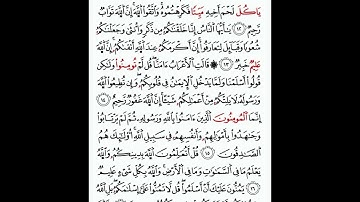 يَاكُلَ لَحْمَ أَخِيهِ مَيِّتًا فَكَرِهْتُمُوهُ وَاتَّقُوا۟ اللَّهَ إِنَّ اللَّهَ تَوَّابٌ
رَّحِيمٌ ١٢ يَٰٓأَيُّهَا النَّاسُ إِنَّا خَلَقْنَٰكُم مِّن ذَكَرٍ وَأُنثَىٰ وَجَعَلْنَٰكُمْ
شُعُوبًا وَقَبَآئِلَ لِتَعَارَفُوٓا۟ إِنَّ أَكْرَمَكُمْ عِندَ اللَّهِ أَتْقَىٰكُمْ إِنَّ اللَّهَ
عَلِيمٌ خَبِيرٌ ١٣ ۞ قَالَتِ الْأَعْرَابُ ءَامَنَّا قُل لَّمْ تُومِنُوا۟ وَلَٰكِن
قُولُوٓا۟ أَسْلَمْنَا وَلَمَّا يَدْخُلِ الْإِيمَٰنُ فِى قُلُوبِكُمْ وَإِن تُطِيعُوا۟ اللَّهَ
وَرَسُولَهُۥ لَا يَلِتْكُم مِّنْ أَعْمَٰلِكُمْ شَيْـًٔا إِنَّ اللَّهَ غَفُورٌ رَّحِيمٌ ١٤
إِنَّمَا الْمُومِنُونَ الَّذِينَ ءَامَنُوا۟ بِاللَّهِ وَرَسُولِهِۦ ثُمَّ لَمْ يَرْتَابُوا۟
وَجَٰهَدُوا۟ بِأَمْوَٰلِهِمْ وَأَنفُسِهِمْ فِى سَبِيلِ اللَّهِ أُو۟لَٰٓئِكَ هُمُ
الصَّٰدِقُونَ ١٥ قُلْ أَتُعَلِّمُونَ اللَّهَ بِدِينِكُمْ وَاللَّهُ
يَعْلَمُ مَا فِى السَّمَٰوَٰتِ وَمَا فِى الْأَرْضِ وَاللَّهُ بِكُلِّ شَىْءٍ عَلِيمٌ ١٦
يَمُنُّونَ عَلَيْكَ أَنْ أَسْلَمُوا۟ قُل لَّا تَمُنُّوا۟ عَلَىَّ إِسْلَٰمَكُم بَلِ اللَّهُ